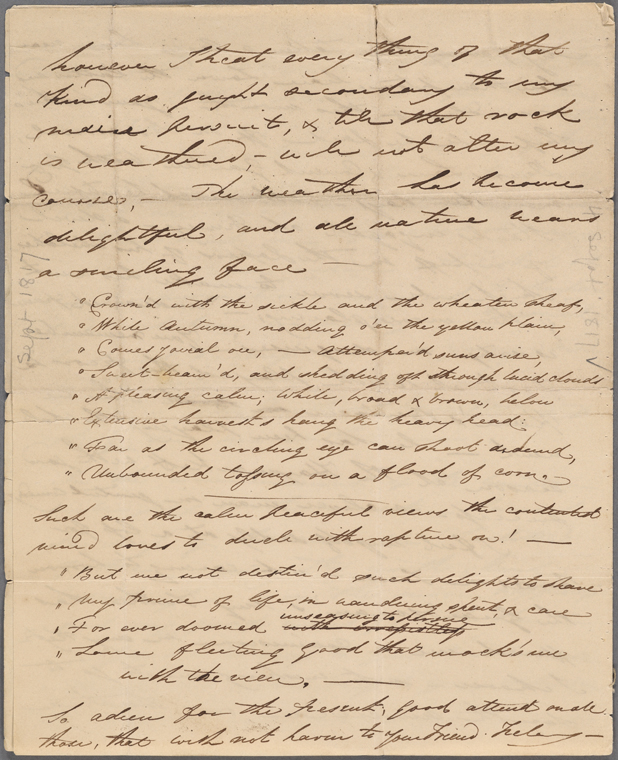 however I treat every thing of that
kind as quight secondary to my
medicil persuits, & till that rock
is weathered, – will not alter my
course, – The weather has become
delightful, and all nature wears
a smiling face —
" Crown'd with the sickle and the wheaten sheaf,
" While Autumn, nodding o'er the yellow plain,
" Comes jovial on, — Attemper'd suns arise,
" Sweet-beam'd, and shedding oft through lucid clouds
" A pleasing calm; While, broad & brown, below
" Extensive harvests hang the heavy head:
" Far as the circling eye can shoot around,
" Unbounded tossing in a flood of corn.
Such are the calm peaceful views the contented
mind loves to dwell with rapture on! —
" But me not destin'd such delights to share
" My prime of life, in wandring spent, & care
unseasing to persue
" For ever doomed with
" Some fleeting good that mock's me
with the view. —
So adieu for the present, good attend on all
those, that wish not harm to your Friend
Sept 1817
Sept. 1817